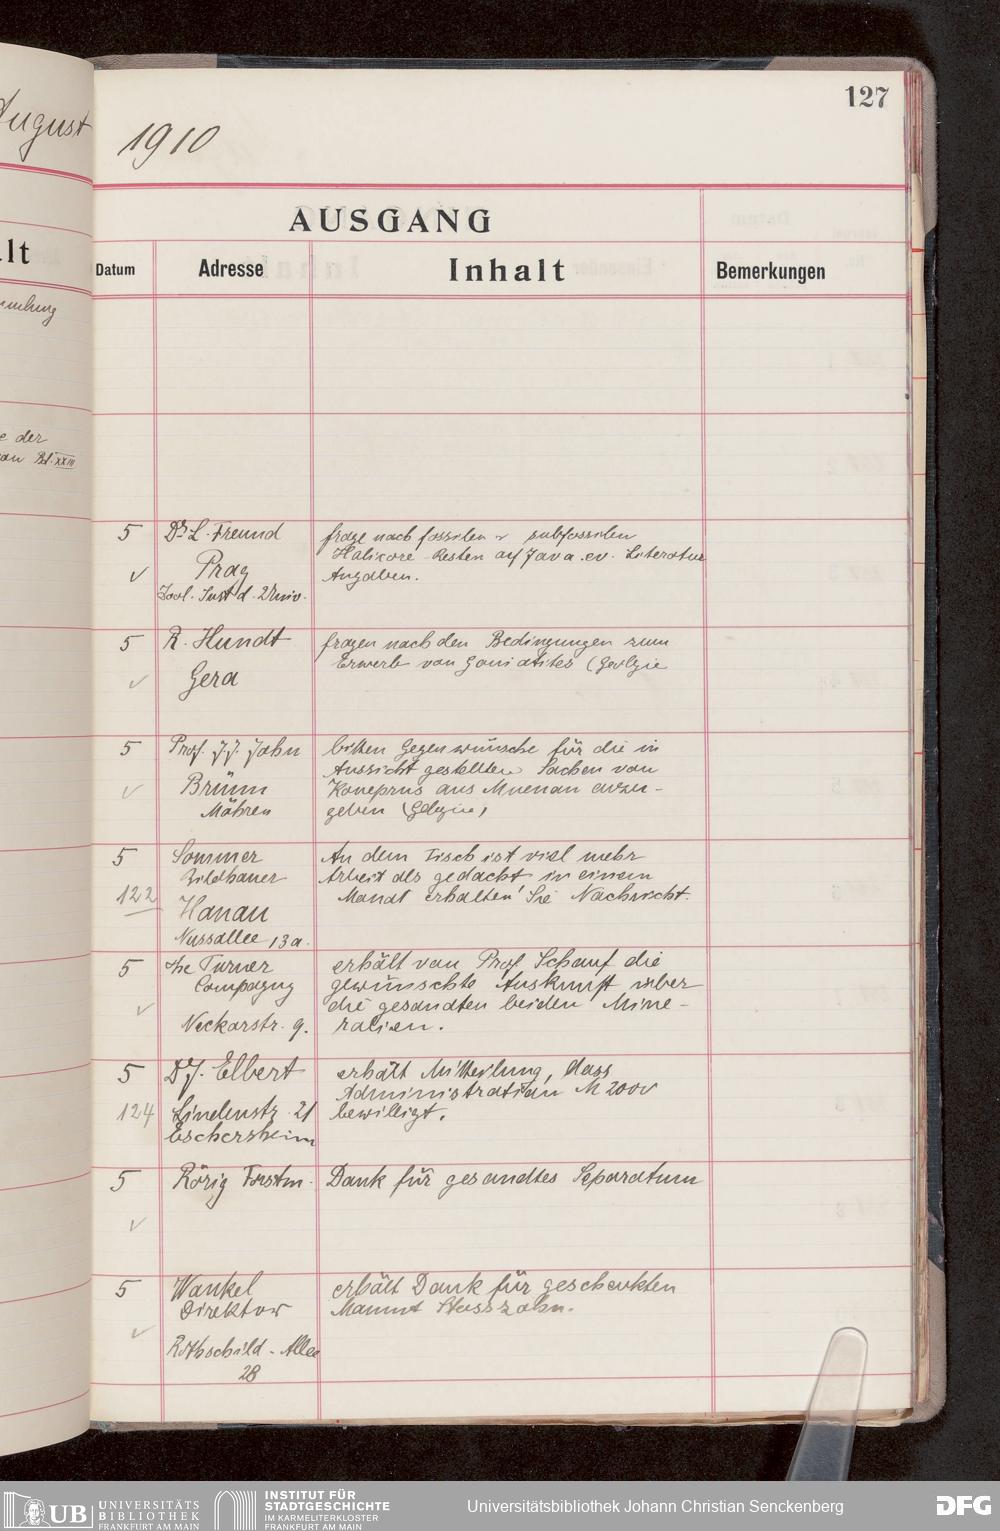 August
127
1910
AUSGANG
lt
Datum
Adresse
Inhalt
Bemerkungen
e der
Bd. XXIII
5
Dr L. Freund
Prag
Zool. Inst d. Univ.
frage nach fossilen u subfossilen
Halicore Resten auf Java. ev. Literatur
Angaben.
5
R. Hundt
Gera
fragen nach den Bedingungen zum
Erwerb von Goniatites (Geolgie
5
Prof. J. J. Jahn
Brünn
Mähren
bitten Gegenwünsche für die in
Aussicht gestellten Sachen von
Koneprus aus Muenan anzu-
geben (Gelogie)
5
122
Sommer
Bildhauer
Hanau
Nussallee 13a.
An dem Tisch ist viel mehr
Arbeit als gedacht in einem
Monat erhalten Sie Nachricht.
5
The Turner
Compagny
Neckarstr. 9.
erhält von Prof Schauf die
gewünschte Auskunft über
die gesandten beiden Mine-
ralien.
5
124
Dr J. Elbert
Lindenstr. 21
Eschersheim
erhält Mitteilung, dass
Administration M 2000
bewilligt.
5
Rörig Forstm.
Dank für gesandtes Separatum
5
Wankel
Direktor
Rothschild-Allee
28
erhält Dank für geschenkten
Mammut Stosszahn.
UB UNIVERSITÄTS
BIBLIOTHEK
FRANKFURT AM MAIN
INSTITUT FÜR
STADTGESCHICHTE
IM KARMELITERKLOSTER
FRANKFURT AM MAIN
Universitätsbibliothek Johann Christian Senckenberg
DFG